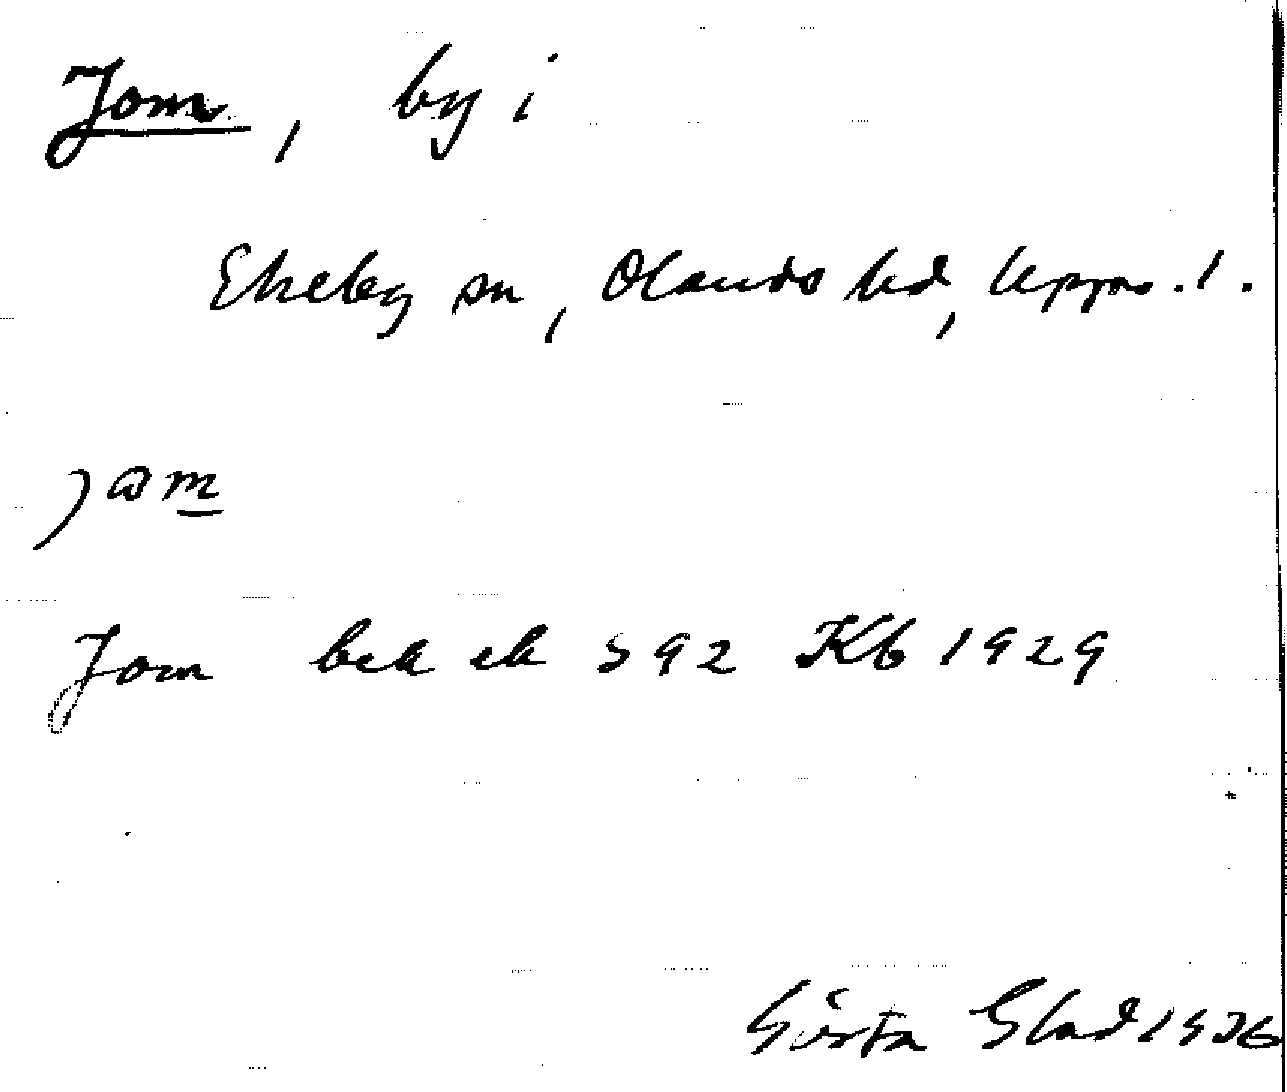 Jom, by i
Ekeby sn, Olands hd, Upps. l.
jɷm
Jom bek ek 592 Kb 1929
Gösta Glad 1926